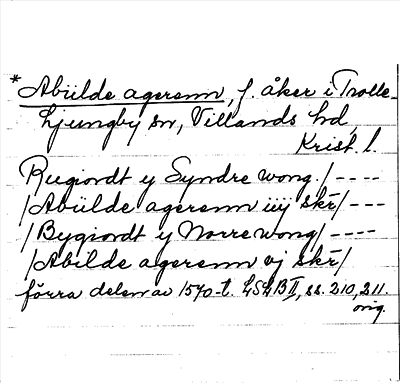 *Abülde agerenn, f. åker i Trolle-
Ljungby sn, Villands hd,
Krist. l.
Rugiordt y Syndre wong. / ----
/ Abülde agerenn iiij skr̄ / ---
/ Bygiordt y Norre wong / ----
/ Abilde agerenn vj skr̄ /
förra delen av 1570-t. LSLB II, ss. 210, 211.
orig.